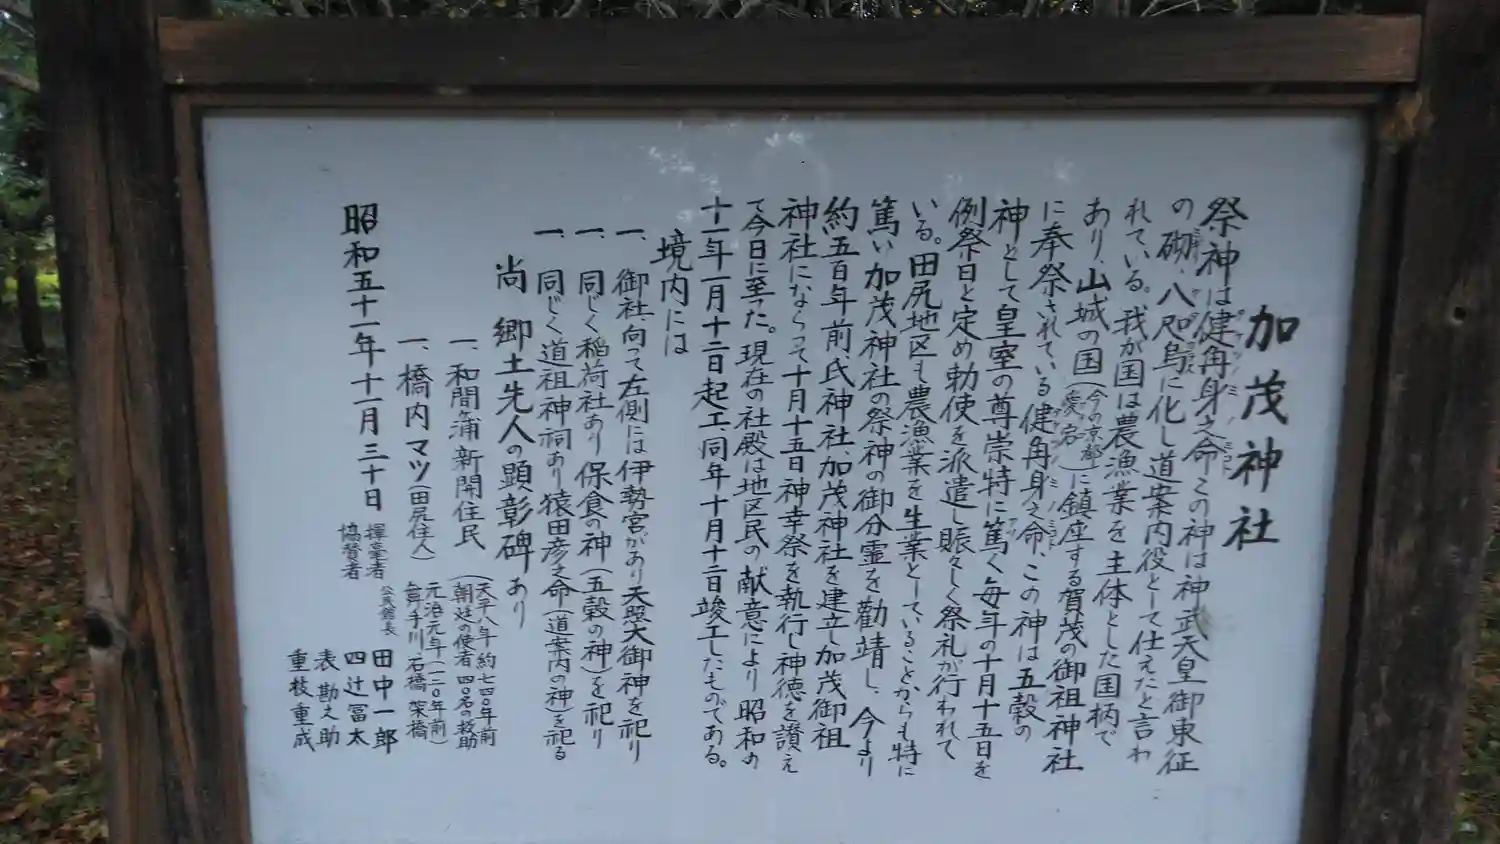 加茂神社
祭神は健角身之命この神は神武天皇御東征
の砌、八咫烏に化し道案内役として仕えたと言わ
れている。我が国は農漁業を主体とした国柄で
あり、山城の国(今の京都愛宕)に鎮座する賀茂の御祖神社
に奉祭されている健角身之命、この神は五穀の
神として皇室の尊崇特に篤く毎年の十月十五日を
例祭日と定め勅使を派遣し賑々しく祭礼が行われて
いる。田尻地区も農漁業を生業としていることからも特に
篤い加茂神社の祭神の御分霊を勧靖し、今より
約五百年前、氏神社、加茂神社を建立し加茂御祖
神社にならって十月十五日神幸祭を執行し神徳を讃え
て今日に至った。現在の社殿は地区民の献意により昭和の
十一年一月十二日起工、同年十月十二日竣工したものである。
境内には
一、御社向って左側には伊勢宮があり天照大御神を祀り
一、同じく稲荷社あり保食の神(五穀の神)を祀り
一、同じく道祖神祠あり猿田彦之命(道案内の神)を祀る
尚郷土先人の顕彰碑あり
一、和間浦新開住民(天平八年約一七四〇年前
朝廷の使者四〇名の救助
一、橋内マツ(田尻住人)元治元年(一二〇年前)
手川石橋架橋
昭和五十一年十一月三十日
揮毫者 公民館長 田中一郎
協賛者 四辻冨太
表勘之助
重枝重成